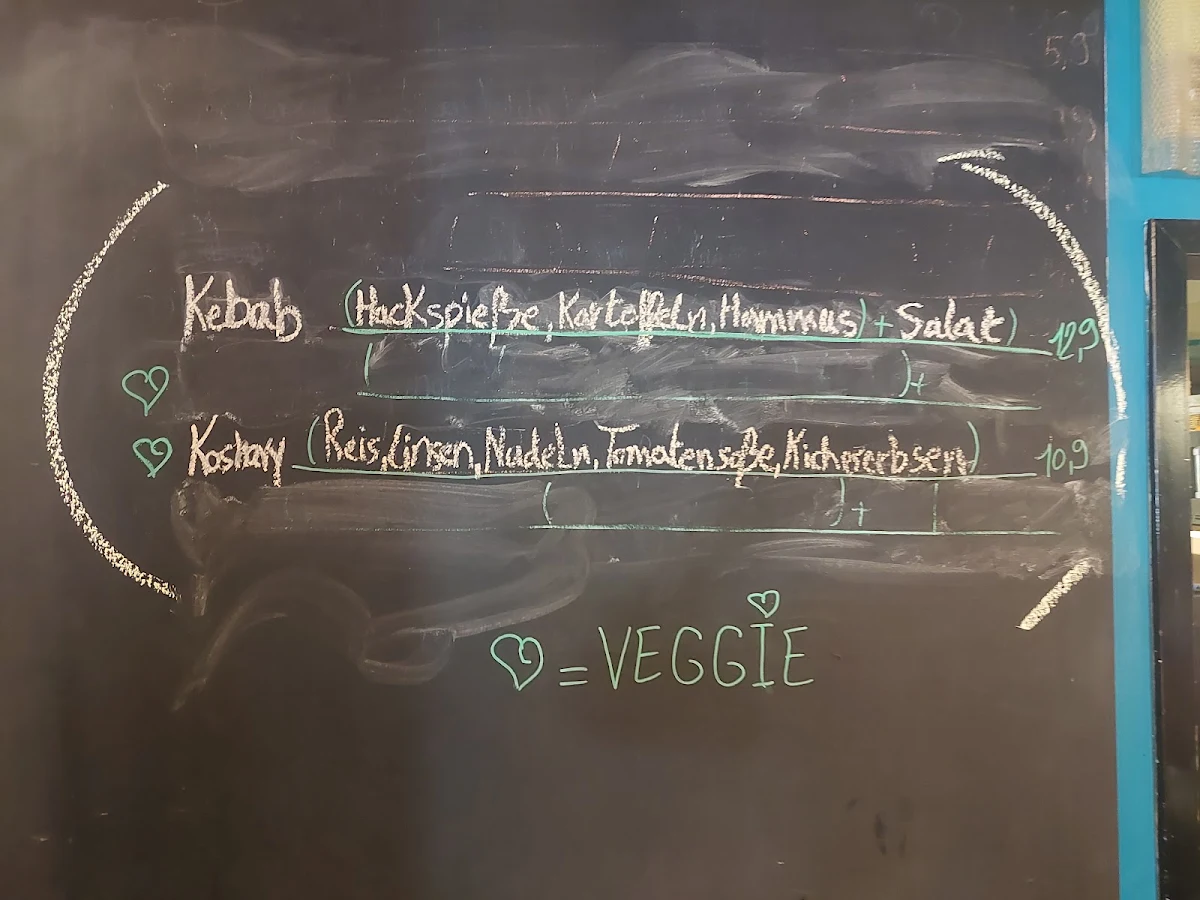 5,9
Kebab (Hackspieße, Kartoffeln, Hommus) + Salat) 12,9
♡ ( ) +
♡ Koshary (Reis, Linsen, Nudeln, Tomatensoße, Kichererbsen) 10,9
( ) +
♡ = VEGGIE